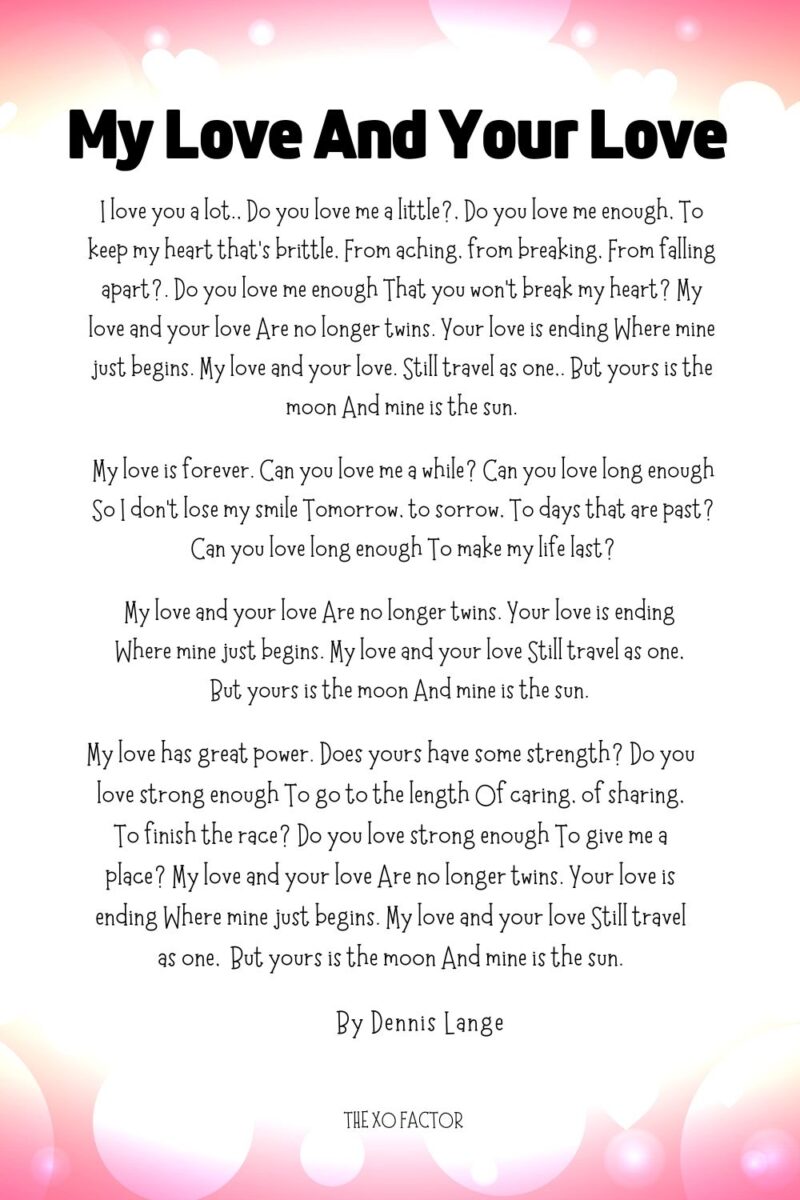 My Love And Your Love
I love you a lot.. Do you love me a little?. Do you love me enough, To
keep my heart that's brittle, From aching, from breaking, From falling
apart?. Do you love me enough That you won't break my heart? My
love and your love Are no longer twins. Your love is ending Where mine
just begins. My love and your love. Still travel as one.. But yours is the
moon And mine is the sun.
My love is forever. Can you love me a while? Can you love long enough
So I don't lose my smile Tomorrow, to sorrow, To days that are past?
Can you love long enough To make my life last?
My love and your love Are no longer twins. Your love is ending
Where mine just begins. My love and your love Still travel as one,
But yours is the moon And mine is the sun.
My love has great power. Does yours have some strength? Do you
love strong enough To go to the length Of caring, of sharing,
To finish the race? Do you love strong enough To give me a
place? My love and your love Are no longer twins. Your love is
ending Where mine just begins. My love and your love Still travel
as one, But yours is the moon And mine is the sun.
By Dennis Lange
THE XO FACTOR